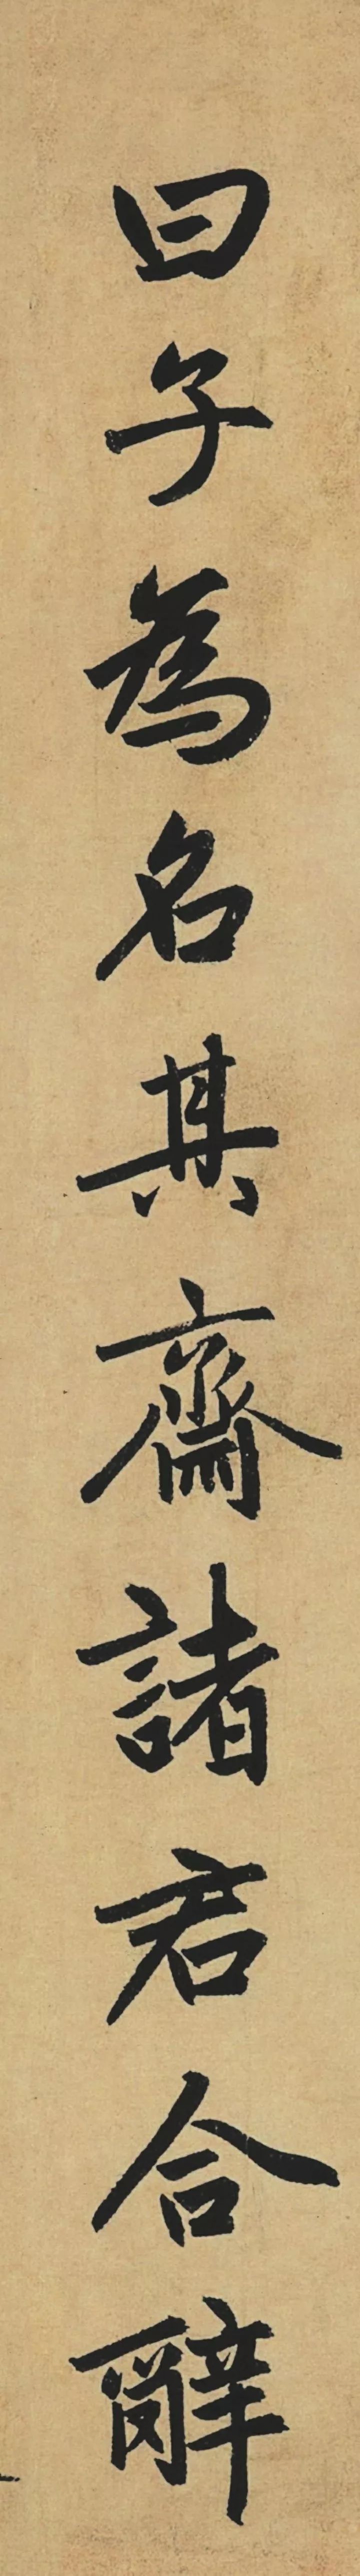 曰子為名其齋諸君合辭